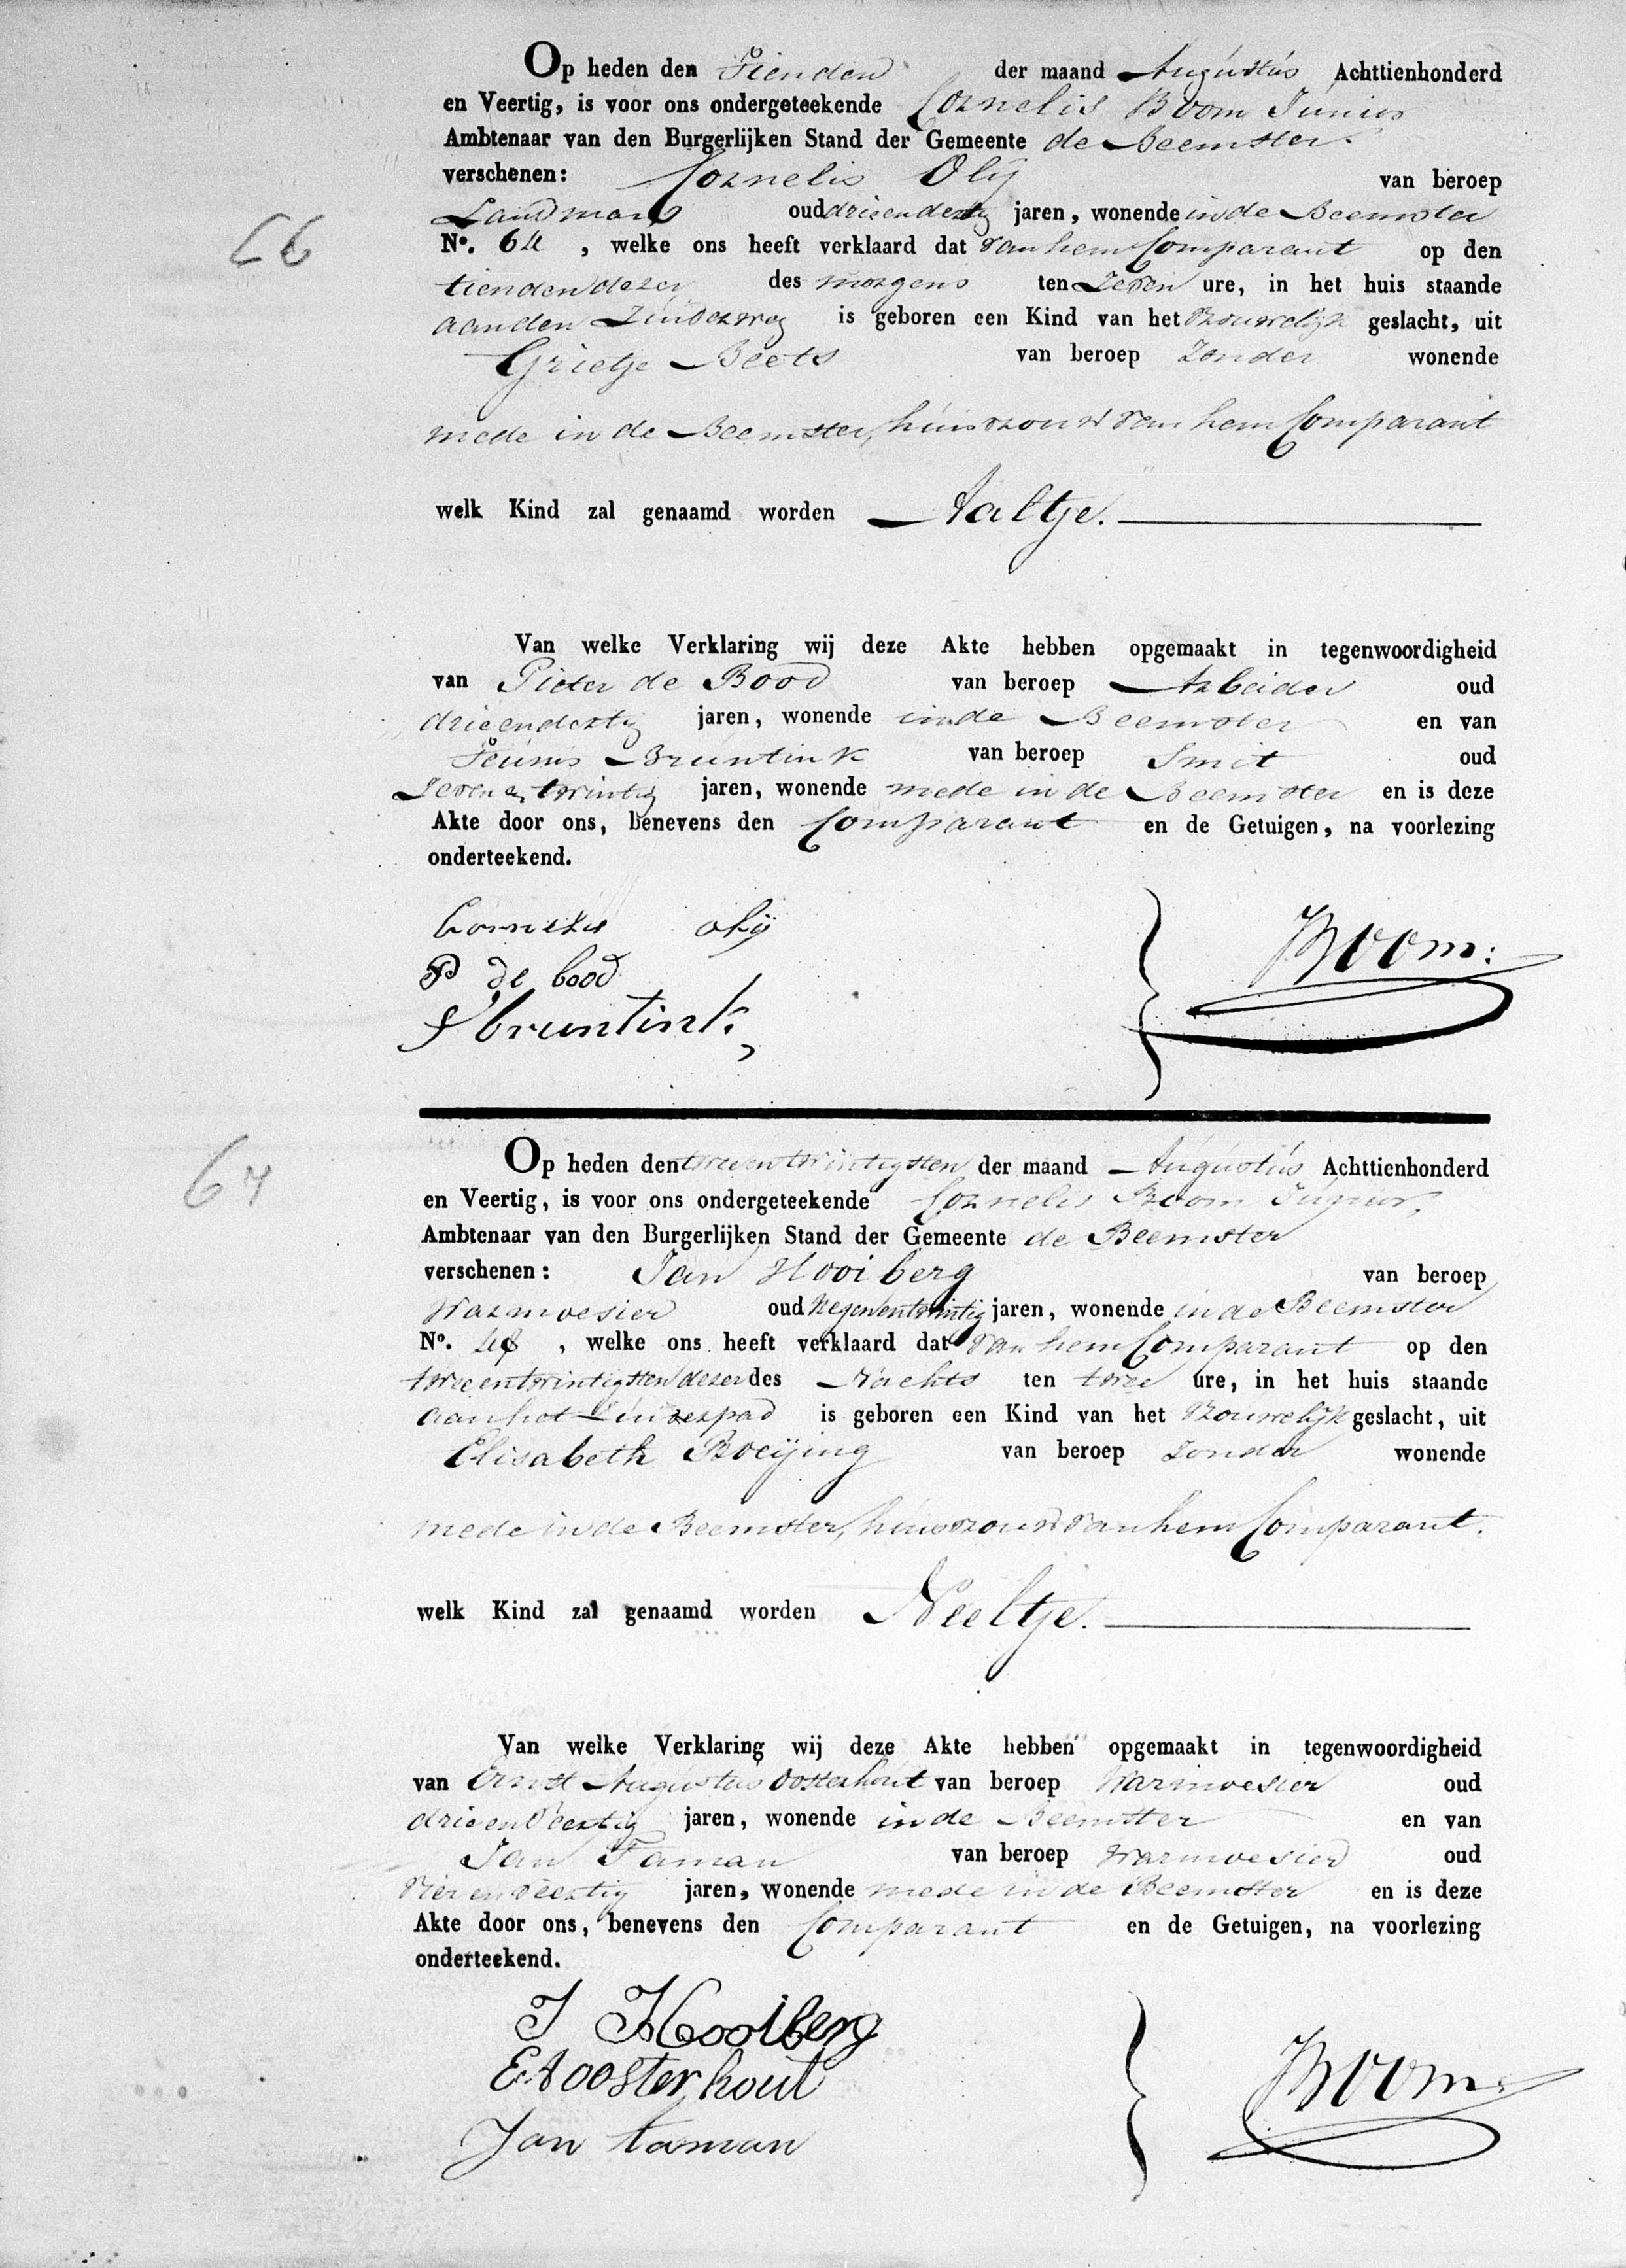 Op heden den Tienden der maand Augustus Achttienhonderd
en Veertig, is voor ons ondergeteekende Cornelis Boom Junior
Ambtenaar van den Burgerlijken Stand der Gemeente de Beemster.
verschenen: Cornelis Olij van beroep
Landman oud drieendertig jaren, wonende in de Beemster
66
No. 64 , welke ons heeft verklaard dat van hem Comparant op den
tienden dezer des morgens ten Zeven ure, in het huis staande
aan den Zuiderweg is geboren een Kind van het Vrouwelijk geslacht, uit
Grietje Beets van beroep Zonder wonende
mede in de Beemster, huisvrouw van hem Comparant
welk Kind zal genaamd worden Aaltje.
Van welke Verklaring wij deze Akte hebben opgemaakt in tegenwoordigheid
van Pieter de Bood van beroep Arbeider oud
drieendertig jaren, wonende in de Beemster en van
Teunis Bruntink van beroep Smit oud
Zeven en twintig jaren, wonende mede in de Beemster en is deze
Akte door ons, benevens den Comparant en de Getuigen, na voorlezing
onderteekend.
Cornelis olij
P de bood
T bruntink
Boom:
Op heden den tweeentwintigsten der maand Augustus Achttienhonderd
67
en Veertig, is voor ons ondergeteekende Cornelis Boom Junior,
Ambtenaar van den Burgerlijken Stand der Gemeente de Beemster
verschenen: Jan Hooiberg van beroep
Warmoesier oud Negenentwintig jaren, wonende in de Beemster
No. , welke ons heeft verklaard dat van hem Comparant op den
tweeentwintigsten dezer des Nachts ten twee ure, in het huis staande
aan het Zuiderpad is geboren een Kind van het Vrouwelijk geslacht, uit
Elisabeth Boeijing van beroep Zonder wonende
mede in de Beemster, huisvrouw van hem Comparant.
welk Kind zal genaamd worden Neeltje.
Van welke Verklaring wij deze Akte hebben opgemaakt in tegenwoordigheid
van Ernst Augustus Oosterhout van beroep Warmoesier oud
drieenveertig jaren, wonende in de Beemster en van
Jan Taman van beroep Warmoesier oud
Vierenveertig jaren, wonende mede in de Beemster en is deze
Akte door ons, benevens den Comparant en de Getuigen, na voorlezing
onderteekend.
J Hooiberg
EAoosterhout
Jan taman
Boom